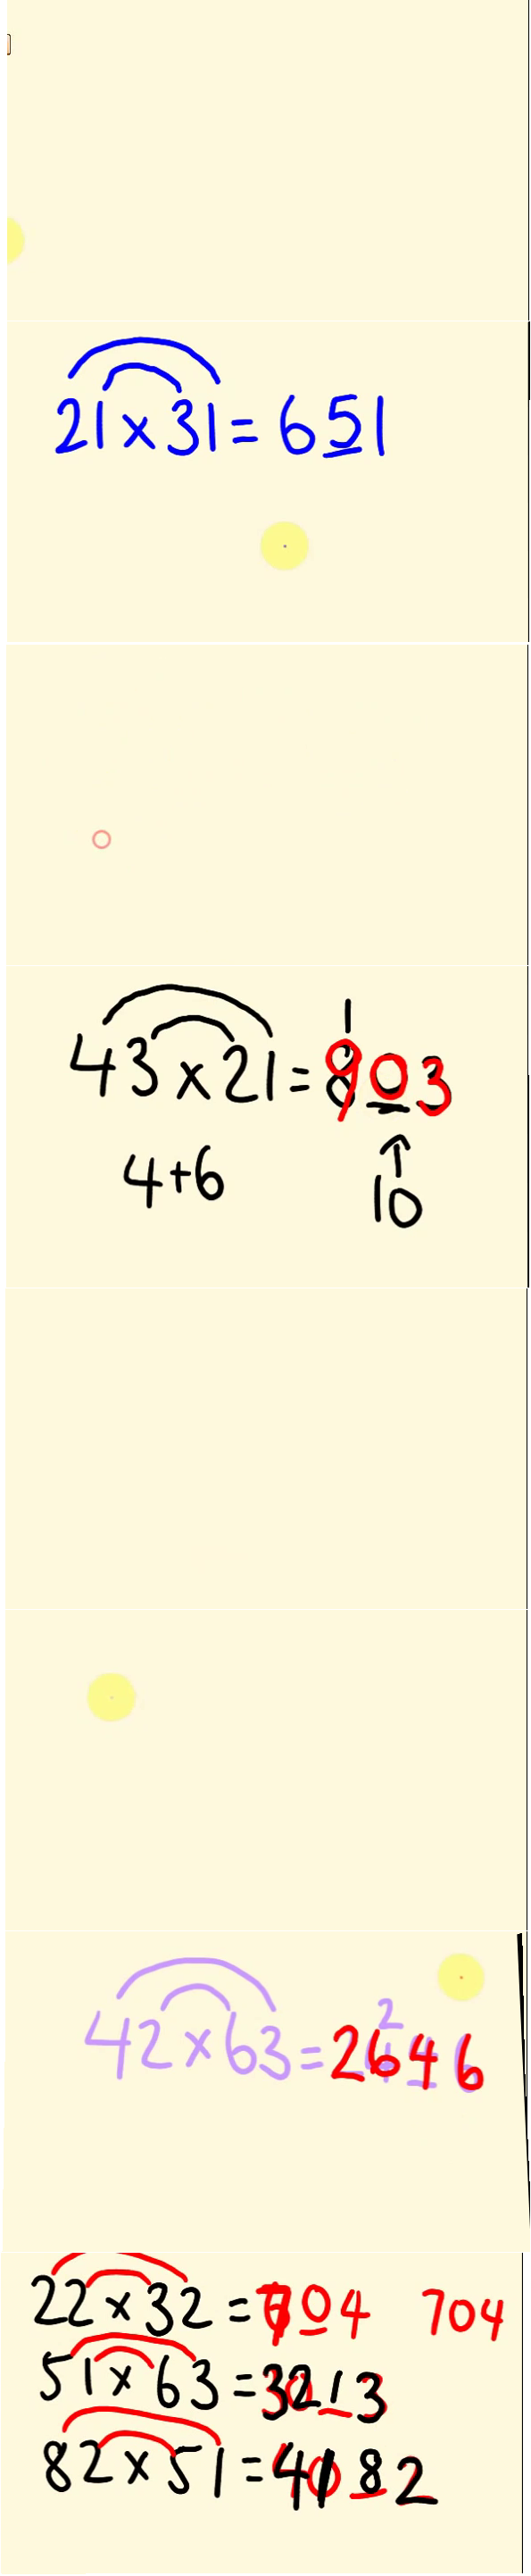 21 x 31 = 651
1
43 x 21 = 903
4+6
↑
10
2
42 x 63 = 2646
22 x 32 = 704 704
51 x 63 = 3213
82 x 51 = 4182